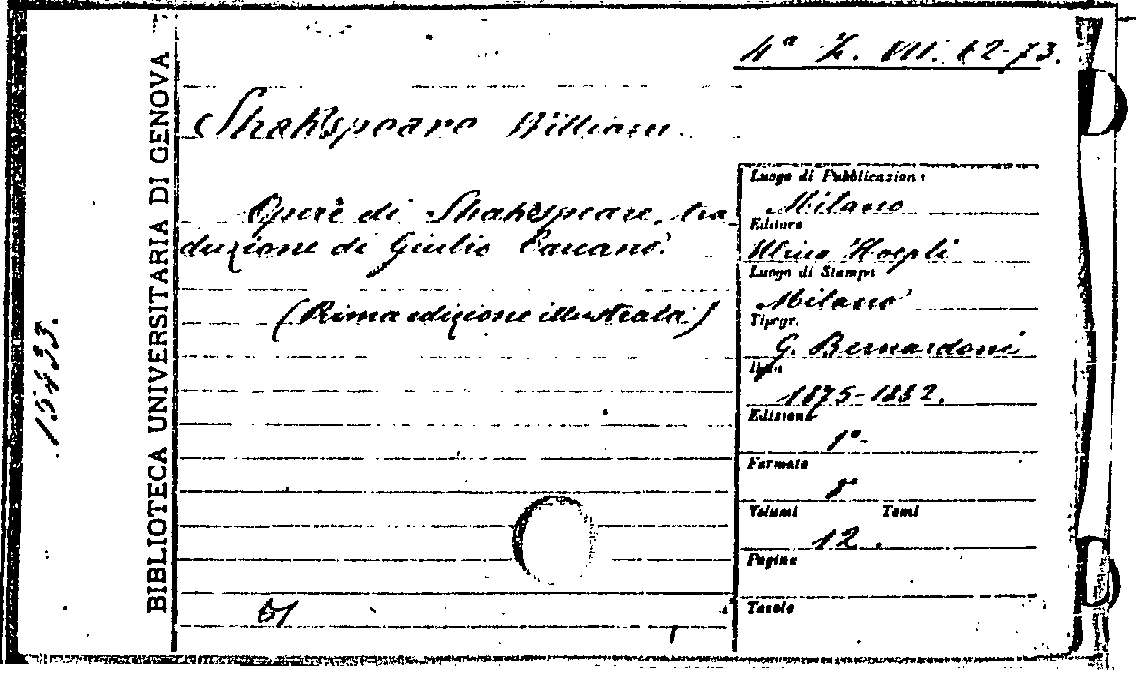 4ª Z. VII. 62-73.
BIBLIOTECA UNIVERSITARIA DI GENOVA
15433.
Shakspeare William.
Opere di Shakspeare, tra
duzione di Giulio Carcano.
(Prima edizione illustrata)
Luogo di Pubblicazione
Milano
Editore
Ulrico Hoepli
Luogo di Stampa
Milano
Tipogr.
G. Bernardoni
Data
1875-1882.
Edizione
1ª
Formato
8º
Volumi Tomi
12.
Pagine
Tavole